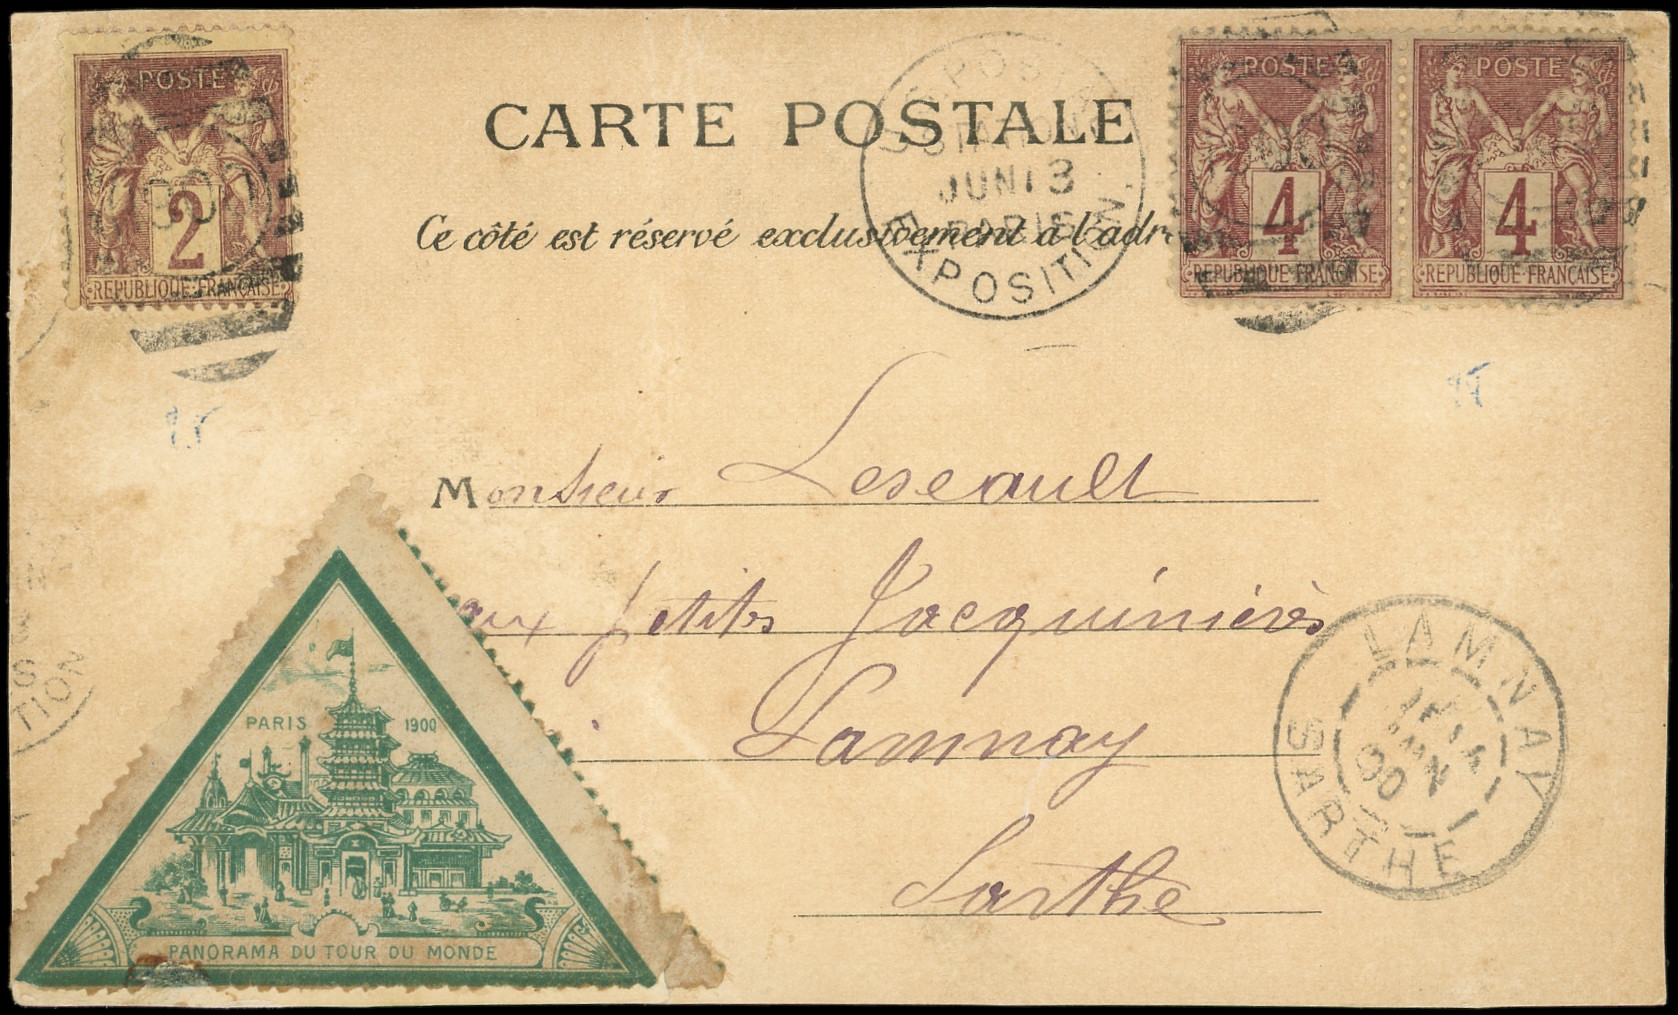 POSTE
2
REPUBLIQUE FRANÇAISE
POSTE
4
REPUBLIQUE FRANÇAISE
POSTE
4
REPUBLIQUE FRANÇAISE
CARTE POSTALE
Ce côté est réservé exclusivement à l'adr
U.S. POSTAL
STATION
JUN 13
PARIS
EXPOSITION.
Monsieur Leseault
aux petites Jacquinières
Lamnay
Sarthe
LAMNAY
00
SARTHE
S
TION
PARIS 1900
PANORAMA DU TOUR DU MONDE